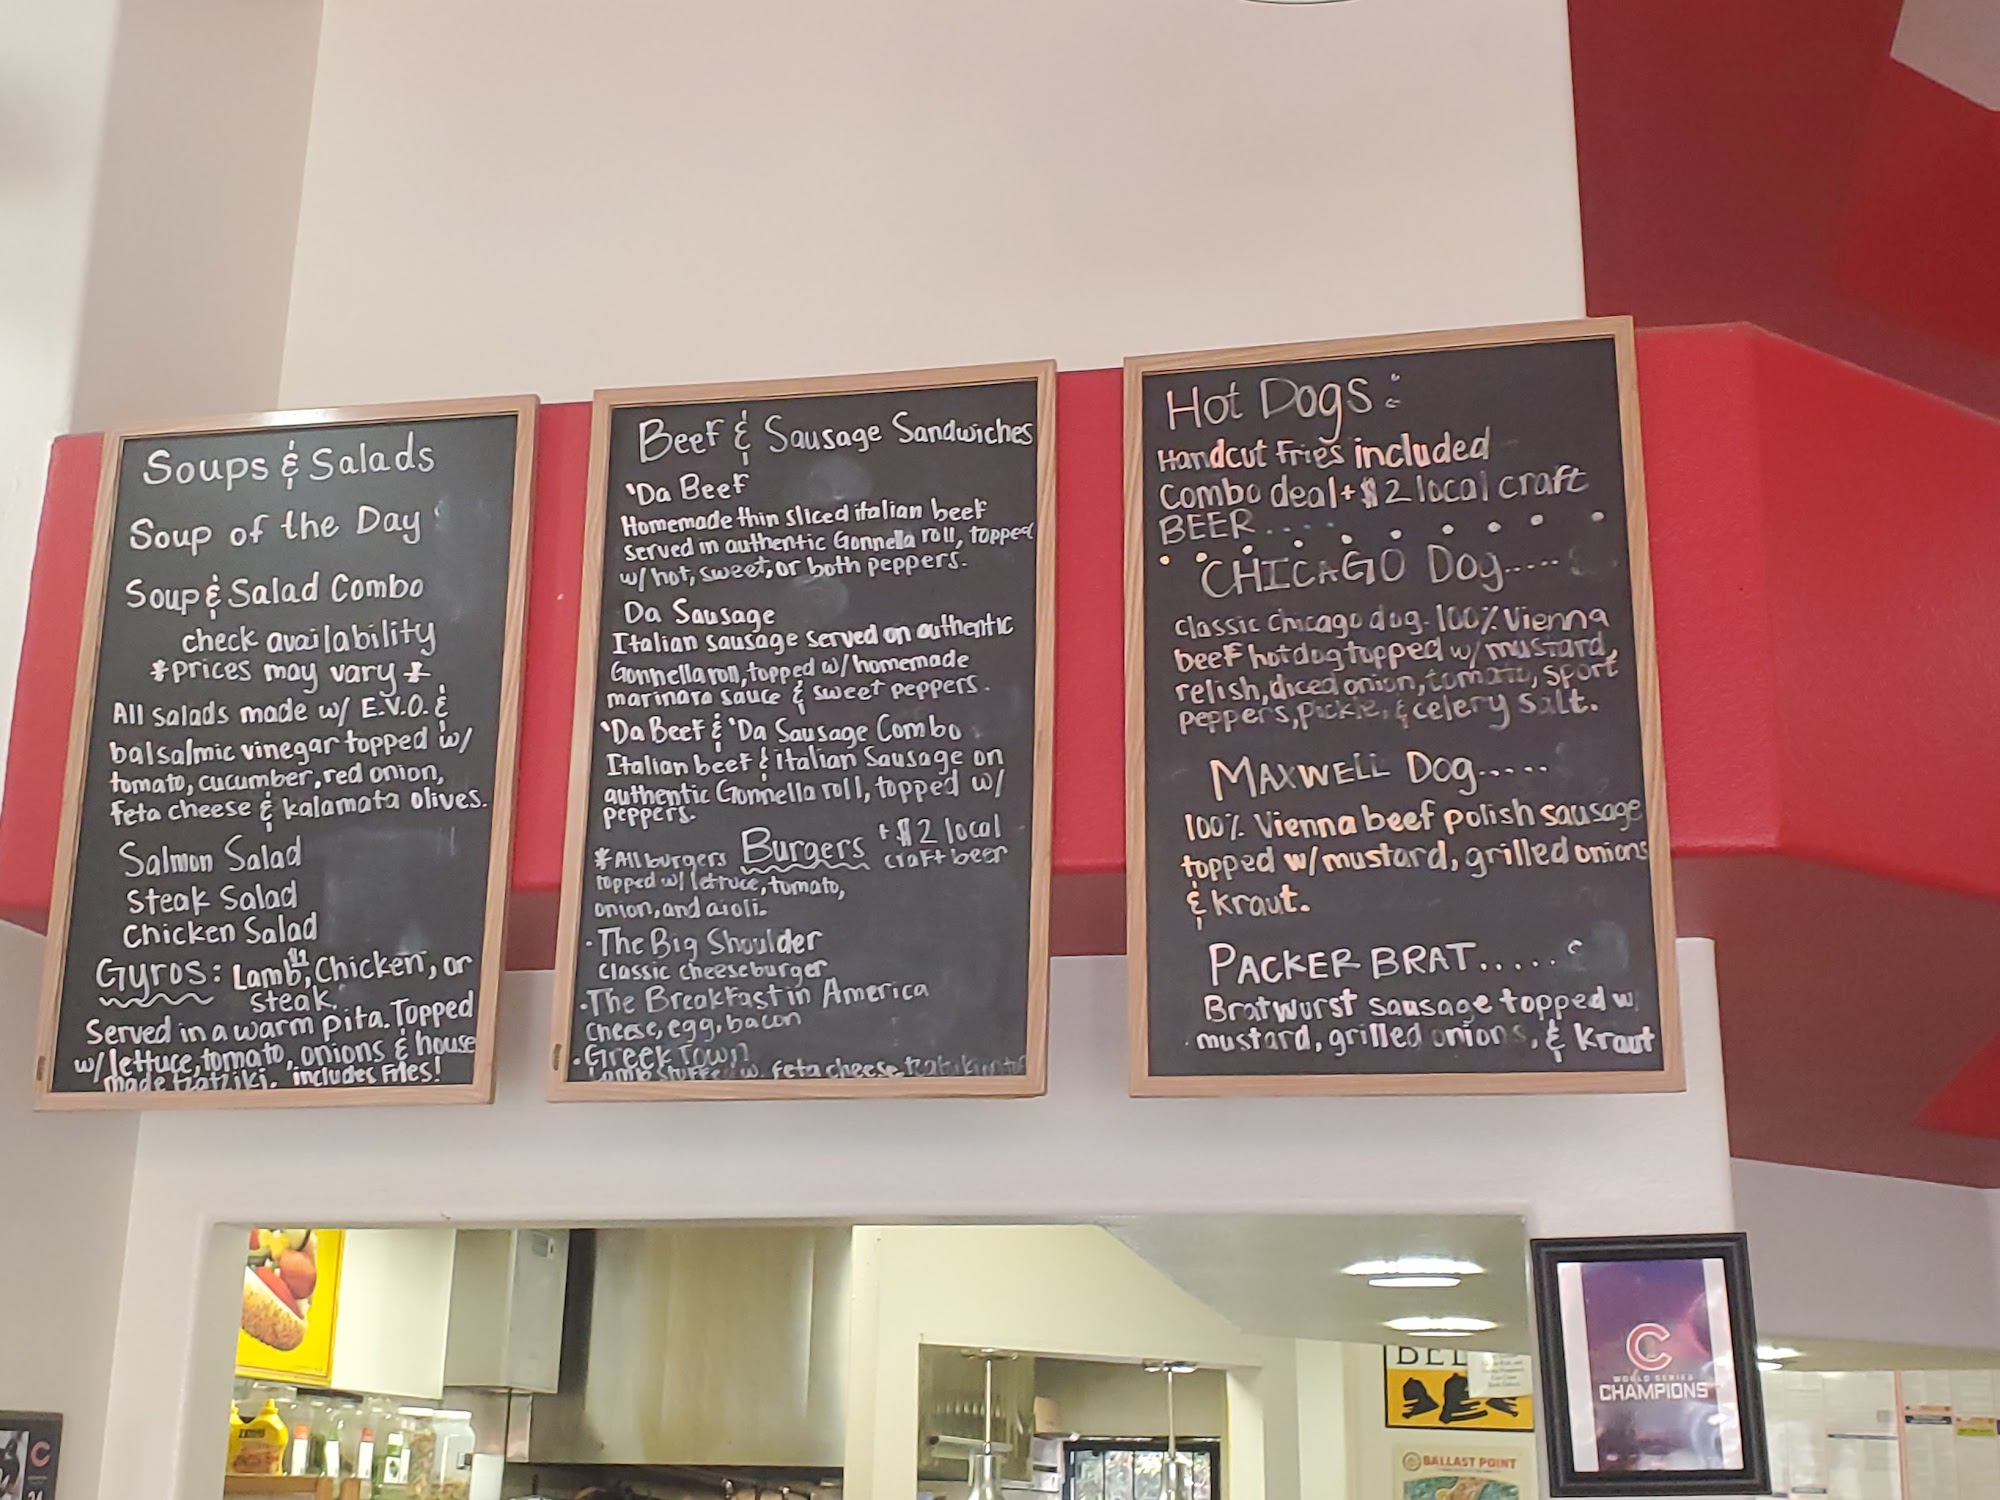 Soups & Salads
Soup of the Day
Soup & Salad Combo
check availability
*prices may vary*
All salads made w/ E.V.O. &
balsalmic vinegar topped w/
tomato, cucumber, red onion,
feta cheese & kalamata olives.
Salmon Salad
Steak Salad
Chicken Salad
Gyros: Lamb, Chicken, or
steak.
Served in a warm pita. Topped
w/ lettuce, tomato, onions & house
made tzatziki. includes Fries!
Beef & Sausage Sandwiches
'Da Beef
Homemade thin sliced italian beef
served in authentic Gonnella roll, topped
w/ hot, sweet, or both peppers.
Da Sausage
Italian sausage served on authentic
Gonnella roll, topped w/ homemade
marinara sauce & sweet peppers.
'Da Beef & 'Da Sausage Combo
Italian beef & italian Sausage on
authentic Gonnella roll, topped w/
peppers.
Burgers + $2 local
craft beer
*All burgers
topped w/ lettuce, tomato,
onion, and aioli.
• The Big Shoulder
classic cheeseburger
• The Breakfast in America
cheese, egg, bacon
• Greek Town
Lamb stuffed w. feta cheese,
Hot Dogs:
Handcut fries included
Combo deal + $2 local craft
BEER....
CHICAGO Dog.....
classic chicago dog. 100% Vienna
beef hotdog topped w/ mustard,
relish, diced onion, tomato, sport
peppers, pickle, & celery salt.
MAXWELL Dog.....
100% Vienna beef polish sausage
topped w/ mustard, grilled onions
& kraut.
PACKER BRAT.....
Bratwurst sausage topped w
mustard, grilled onions, & kraut
C
WORLD SERIES
CHAMPIONS
BALLAST POINT
C